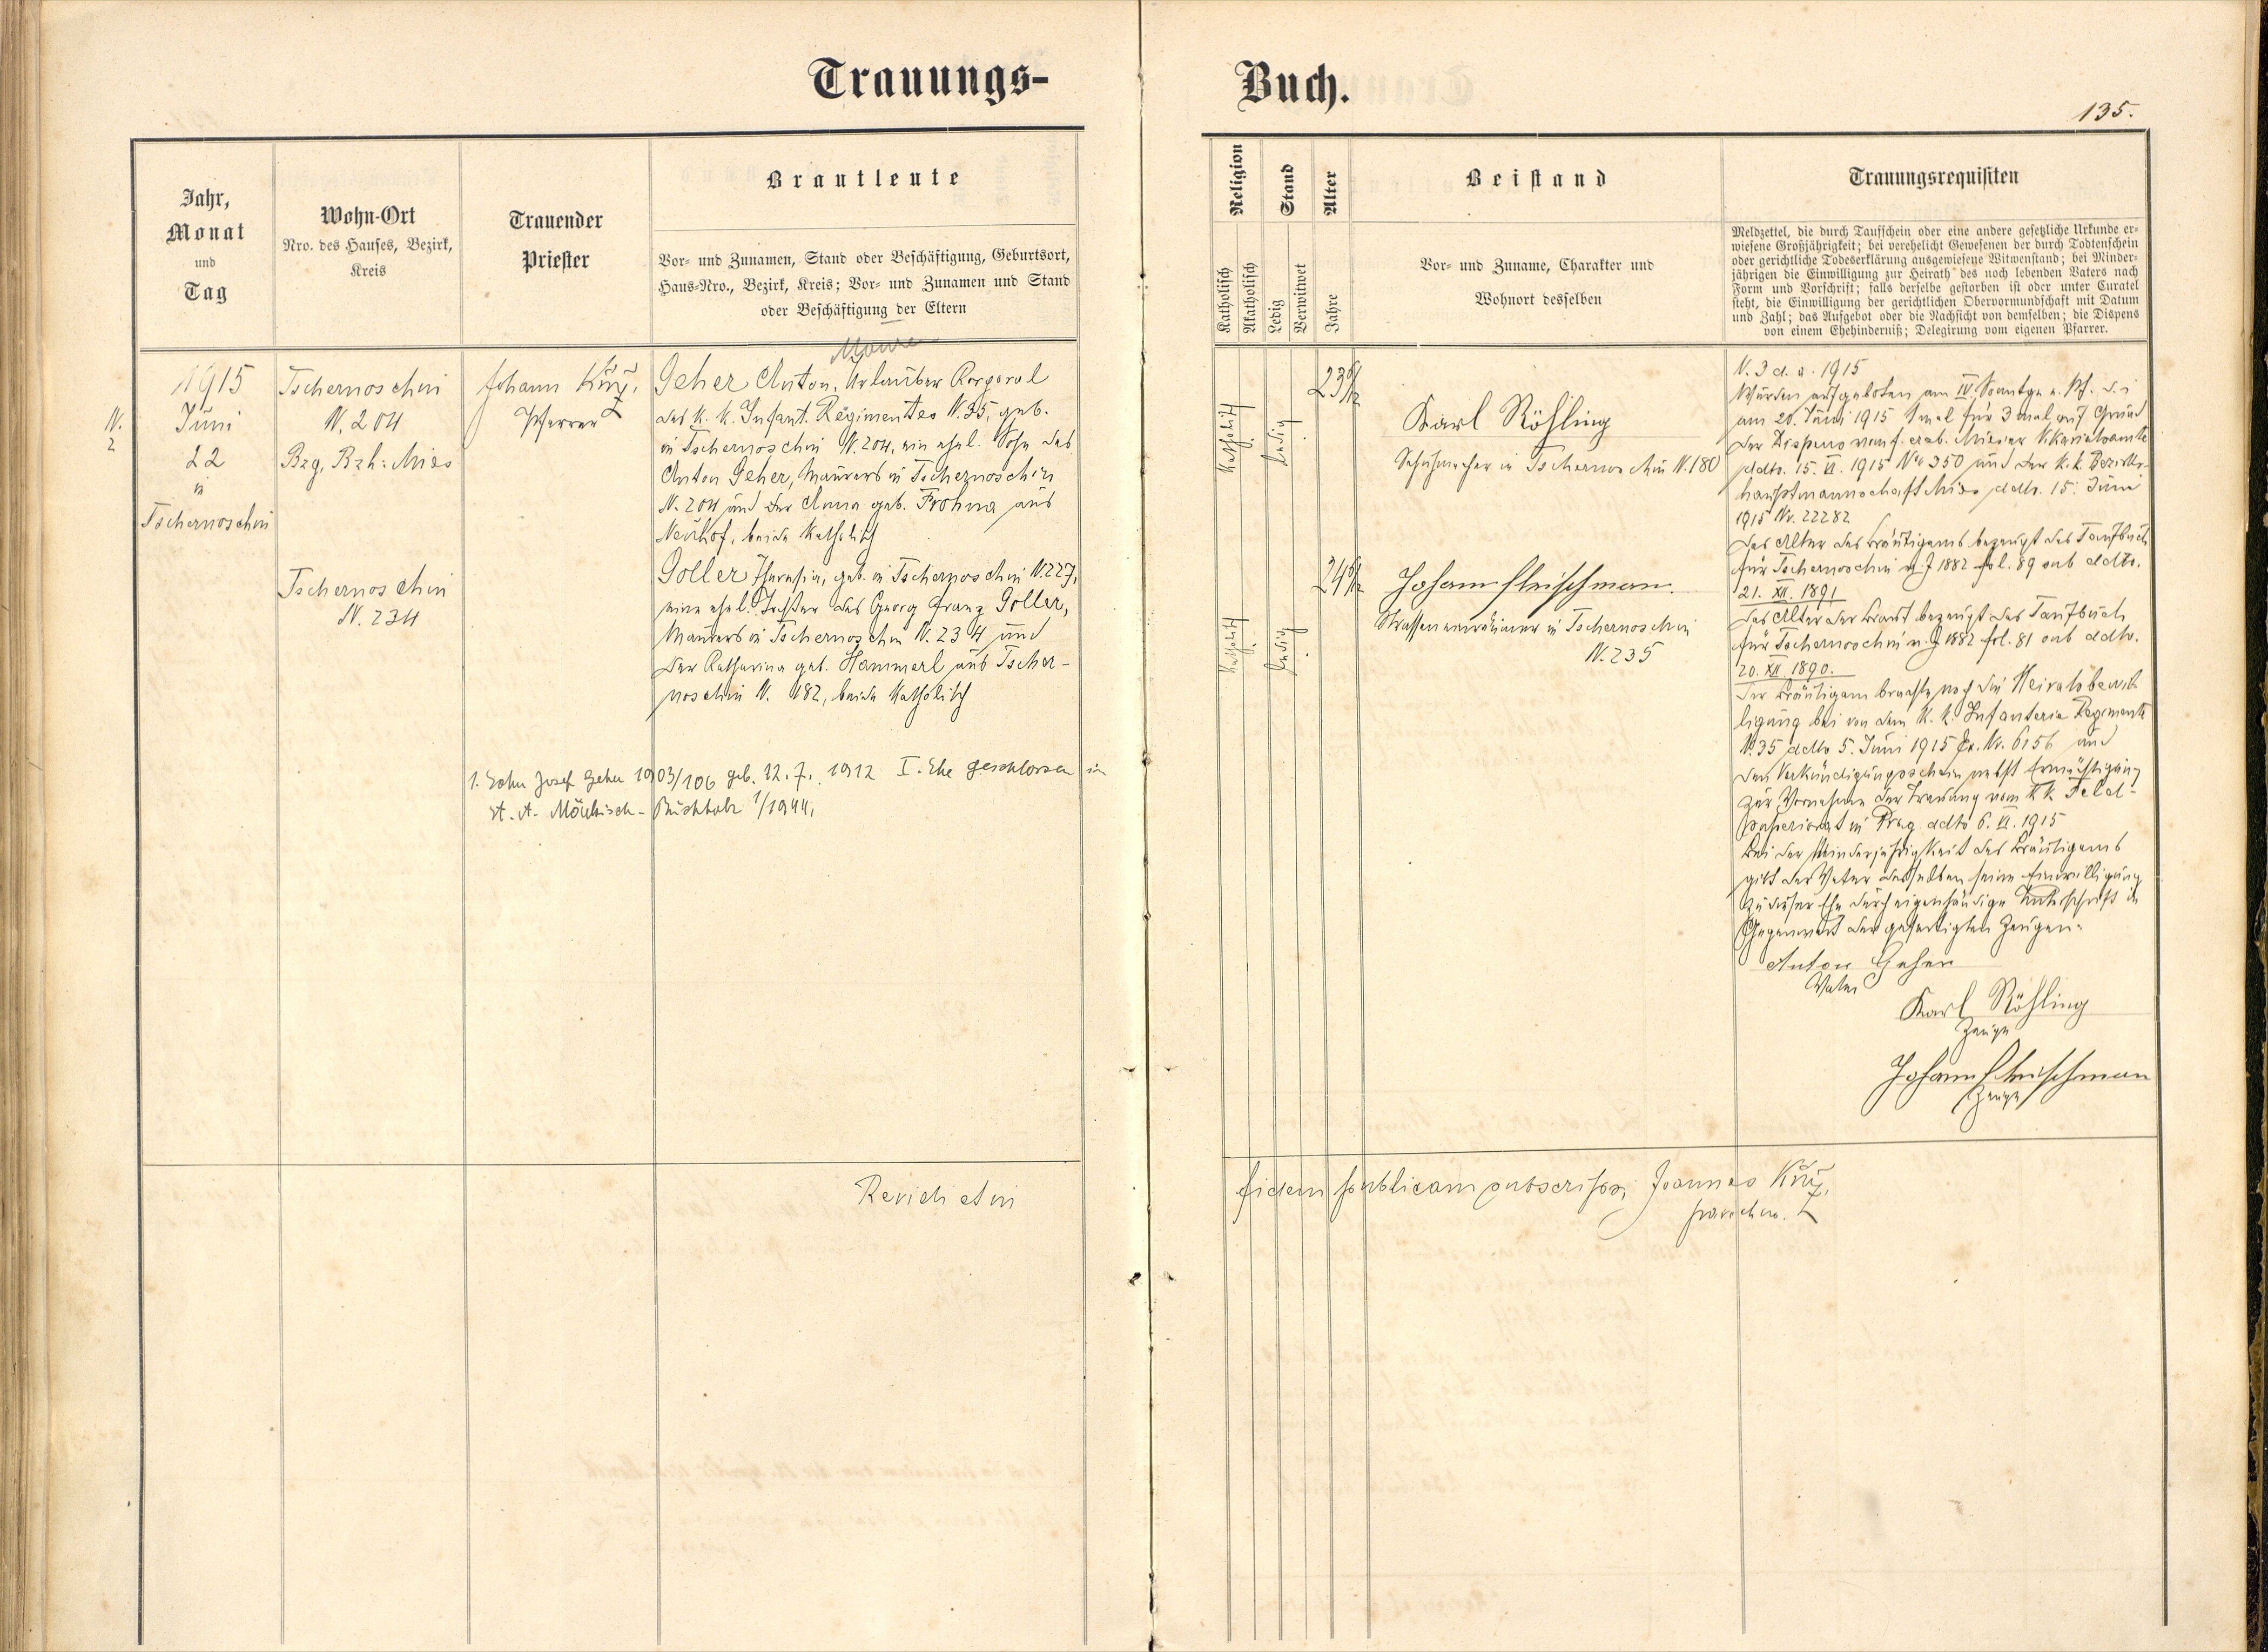 Trauungs-
Buch.
135.
Jahr,
Monat
und
Tag
Wohn-Ort
Nro. des Hauses, Bezirk,
Kreis
Trauender
Priester
Brautleute
Vor- und Zunamen, Stand oder Beschäftigung, Geburtsort,
Haus-Nro., Bezirk, Kreis; Vor- und Zunamen und Stand
oder Beschäftigung der Eltern
Religion
Katholisch
Akatholisch
Stand
Ledig
Verwitwet
Alter
Jahre
Beistand
Vor- und Zuname, Charakter und
Wohnort desselben
Trauungsrequisiten
Meldzettel, die durch Taufschein oder eine andere gesetzliche Urkunde er-
wiesene Großjährigkeit; bei verehelicht Gewesenen der durch Todtenschein
oder gerichtliche Todeserklärung ausgewiesene Witwenstand; bei Minder-
jährigen die Einwilligung zur Heirath des noch lebenden Vaters nach
Form und Vorschrift; falls derselbe gestorben ist oder unter Curatel
steht, die Einwilligung der gerichtlichen Obervormundschaft mit Datum
und Zahl; das Aufgebot oder die Nachsicht von demselben; die Dispens
von einem Ehehinderniß; Delegirung vom eigenen Pfarrer.
N.
2
1915
Juni
22
in
Tschernoschin
Tschernoschin
N. 204
Bzg, Bzh: Mies
Tschernoschin
N. 234
Johann
Pfarrer
Geher Anton, Urlauber Korporal
des K. K. Infant. Regimentes N. 35, geb.
in Tschernoschin N. 204, ein ehel. Sohn des
Anton Geher, Maurers in Tschernoschin
N. 204 und der Anna geb. Frohna aus
Neuhof, beide Katholisch
Goller Theresia, geb. in Tschernoschin N. 227,
eine ehel. Tochter des Georg Franz Goller,
Maurers in Tschernoschin N. 234 und
der Katharina geb. Hammerl aus Tscher-
noschin N. 182, beide Katholisch
1. Sohn Josef Geher 1903/106 geb. 12. 7. 1912 I. Ehe geschlossen in
St. A. Märkisch-Buchholz 1/1944,
Revidi etni
Katholisch
Ledig
23 6/12
Karl Röhling
Schuhmacher in Tschernoschin N. 180
Katholisch
Ledig
24 6/12
Johann Fleischman.
Strasseneinräumer in Tschernoschin
N. 235
N. 3 d. a. 1915
Wurden aufgeboten am IV. Sonntge n. Pf. d. i
am 20. Juni 1915 1mal für 3mal auf Grund
der Dispens vom f. erzb. Mieser Vikariatsamte
ddto. 15. VI. 1915 No 350 und der k. k. Bezirks-
hauptmannschaft Mies ddto. 15. Juni
1915 Nr. 22282
Das Alter des Bräutigams bezeugt das Taufbuch
für Tschernoschin v. J 1882 fol. 89 sub ddto.
21. XII. 1891
Das Alter der Braut bezeugt das Taufbuch
für Tschernoschin v. J. 1882 fol. 81 sub ddto.
20. XII. 1890.
Der Bräutigam brachte noch die Heiratsbewil-
ligung bei von dem K. K. Infanterie Regimente
N. 35 ddto 5. Juni 1915 Ex. Nr. 6156 und
den Verkündigungsschein nebst Ermächtigung
zur Vornahme der Trauung vom KK Feld-
superiorat in Prag ddto 6. VI. 1915
Bei der Minderjährigkeit des Bräutigams
gibt der Vater desselben seine Einwilligung
zu dieser Ehe durch eigenhändige Unterschrift in
Gegenwart der gefertigten Zeugen.
Anton Geher
Vater
Karl Röhling
Zeuge
Johann Fleischman
Zeuge
fidem publicam subscripsi Joannes
parochus.